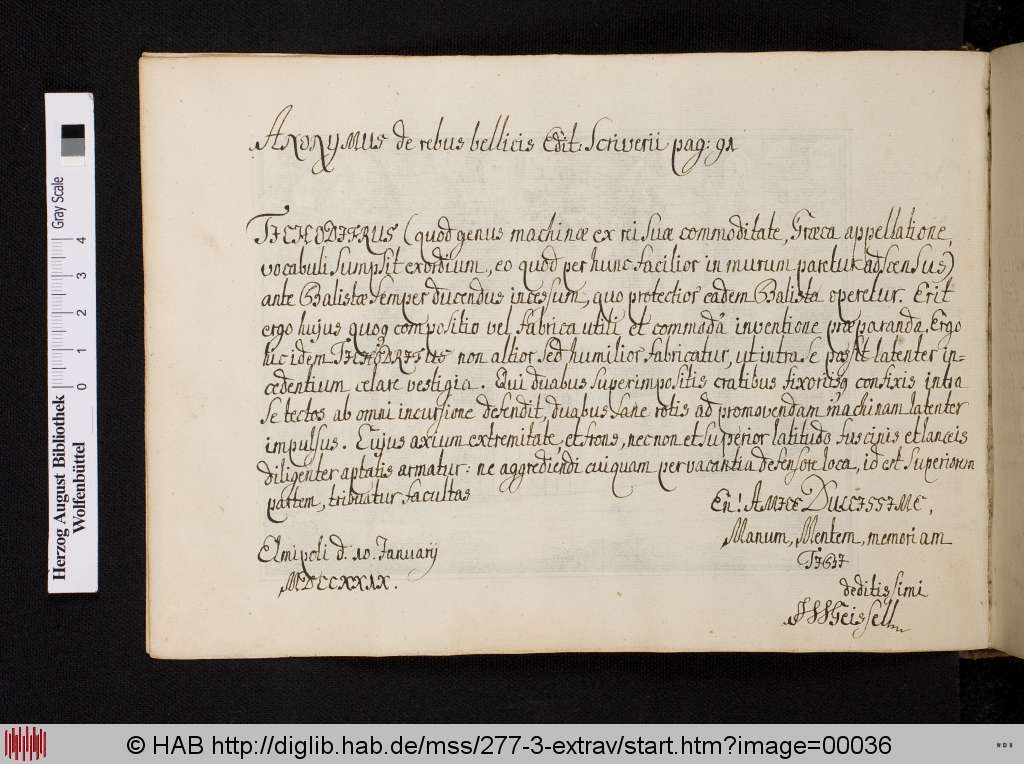 ANONYMUS de rebus bellicis Edit: Scriverii pag: 91
TICHODIFRUS (quod genus machinæ ex rei suæ commoditate, Græca appellatione,
vocabuli sumpsit exordium, eo quod per hunc facilior in murum paretur adscensus)
ante Balistæ semper ducendus incessum, quo protectior eadem Balista operetur. Erit
ergo hujus quoq compositio vel fabrica utili et commoda inventione præparanda. Ergo
hic idem non altior sed humilior fabricatur, ut intra se possit latenter in=
cedentium celare vestigia. Qui duabus superimpositis cratibus fixoriisq confixis intra
se tectos ab omni incursione defendit, duabus sane rotis ad promovendam machinam latenter
impulsus. Cujus axium extremitate, et frons, nec non et superior latitudo fuscinis et lanceis
diligenter aptatis armatur: ne aggrediendi cuiquam per vacantia defensore loca, id est superiorem
partem, tribuatur facultas
En! AMICE DULCISSIME,
Manum, Mentem, memoriam
deditissimi
Geissell
Elmipoli d. 10. Januarij
MDCCXXIX.
Herzog August Bibliothek
Wolfenbüttel
Gray Scale
0 1 2 3 4
© HAB http://diglib.hab.de/mss/277-3-extrav/start.htm?image=00036